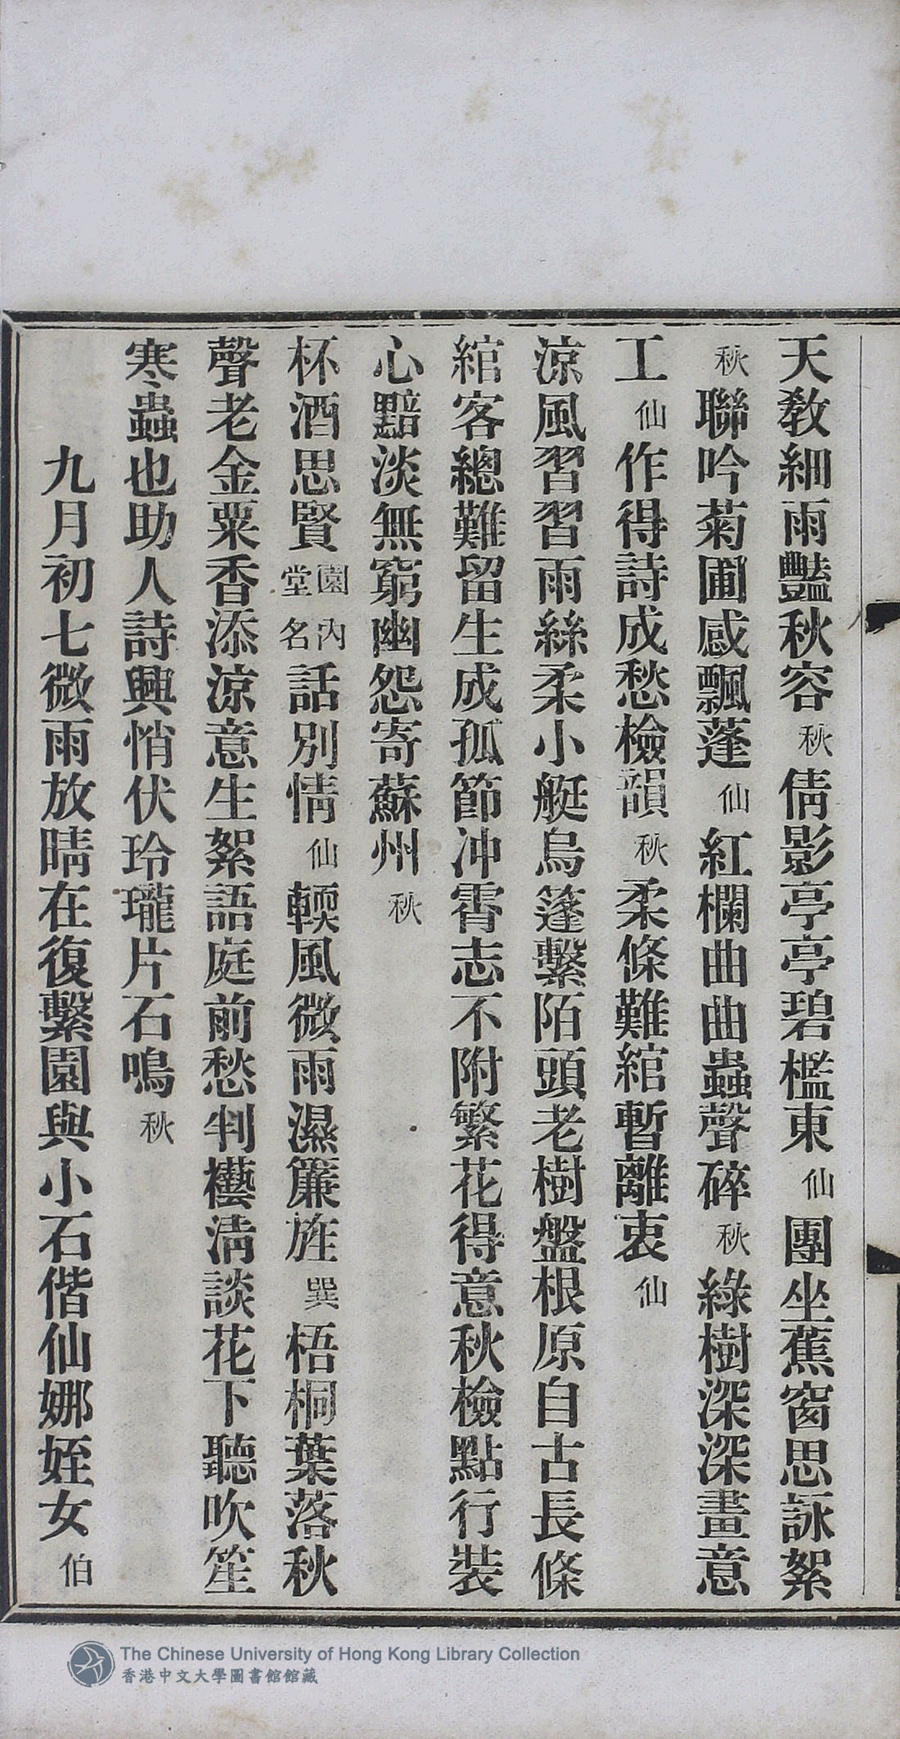 天教細雨豔秋容秋倩影亭亭碧檻東仙團坐蕉窗思詠絮
秋聯吟菊圃感飄蓬仙紅欄曲曲蟲聲碎秋綠樹深深畫意
工仙作得詩成愁檢韻秋柔條難綰暫離衷仙
涼風習習雨絲柔小艇烏篷繫陌頭老樹盤根原自古長條
綰客總難留生成孤節冲霄志不附繁花得意秋檢點行裝
心黯淡無窮幽怨寄蘇州秋
杯酒思賢園內堂名話別情仙輭風微雨濕簾旌巽梧桐葉落秋
聲老金粟香添涼意生絮語庭前愁判襼淸談花下聽吹笙
寒蟲也助人詩興悄伏玲瓏片石鳴秋
九月初七微雨放晴在復繫園與小石偕仙娜姪女伯
The Chinese University of Hong Kong Library Collection
香港中文大學圖書館館藏